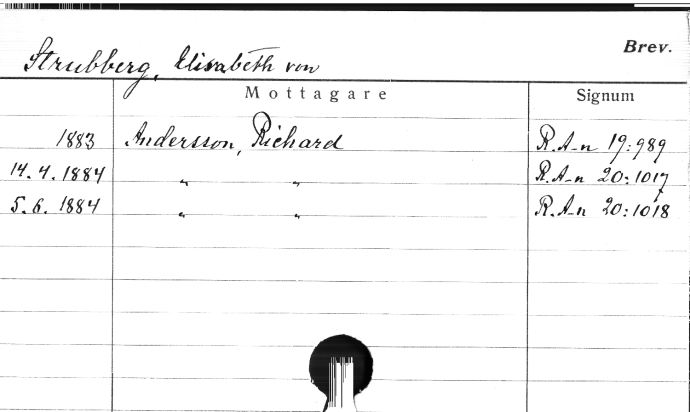 Brev.
Strubberg, Elisabeth von
Mottagare Signum
1883 Andersson, Richard R.A-n 19:989
14.4.1884 " " R.A-n 20:1017
5.6.1884 " " R.A-n 20:1018